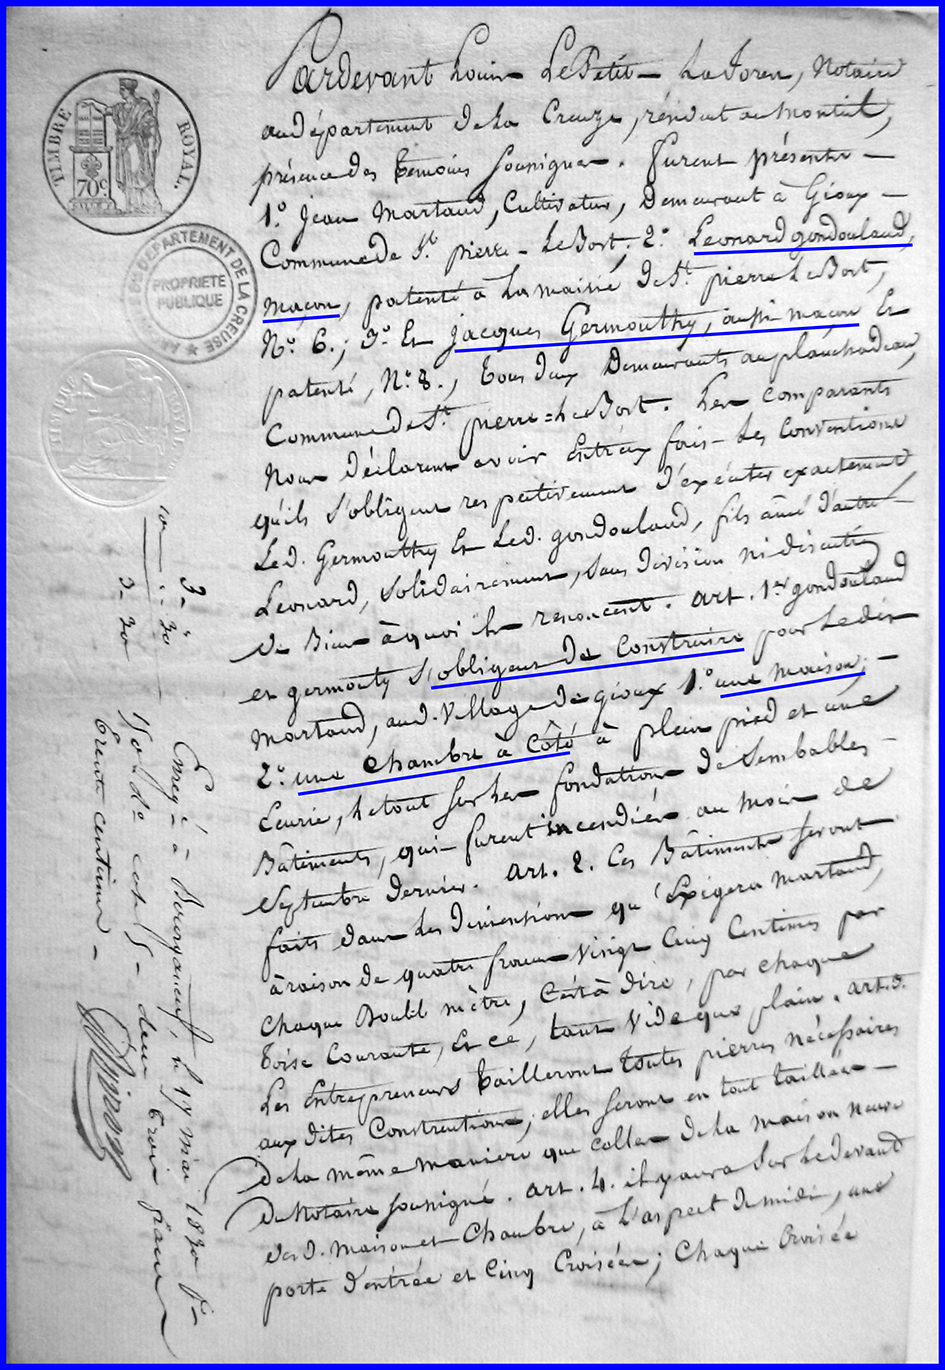 TIMBRE ROYAL.
70c.
DEPARTEMENT DE LA CREUSE
PROPRIETE
PUBLIQUE
Pardevant Louis LePetit - Laforen, Notaire
au département de la Creuze, résidant au monteil,
présence des témoins sousignés. furent présents -
1.° Jean Martaud, Cultivateur, Demeurant à Gioux -
Commune de St. pierre - LeBost; 2.° Leonard gondouland,
maçon, patenté à La mairie de St. pierre LeBost,
N.° 6.; 3.° Et Jacques Germouthy, aussi maçon Et
patenté, N.° 8., tous deux Demeurants au planchadeau,
Commune de St. pierre=LeBost. Les comparants
Nous déclarent avoir Entr'eux fait Les Conventions
qu'ils s'obligent respectivement d'exécuter exactement
Led. Germouthy Et Led. gondouland, fils ainé d'autre
Leonard, Solidairement, sans division ni discution
de Biens à quoi ils renoncent. art. 1er gondouland
et germouty s'obligent de Construire pour Ledit
Martaud, aud. Village de gioux 1.° une maison, -
2.° une chambre à Côté à plein pied et une
Ecurie, le tout sur les fondations de Semblables -
Bâtiments, qui furent incendiés au mois de
Septembre dernier. art. 2. Ces Bâtiments seront
faits dans les dimentions qu'Exigera Martaud,
à raison de quatre francs Vingt Cinq Centimes par
chaque Double mètre, C'est à dire, par chaque
toise Courante, Et ce, tant Vide que plain. art. 3.
Les Entrepreneurs tailleront toutes pierres nécessaires
aux dites Constructions, elles seront en tout taillées -
de la même maniere que celles de la maison neuve
du Notaire sousigné. art. 4. il y aura sur Le devant
desd. maison et Chambre, à l'aspect de midi, une
porte d'entrée et Cinq Croisées; Chaque Croisée
3 -
.. 30
3 - 30
le 17 mai 1830
deux francs
trente centimes -